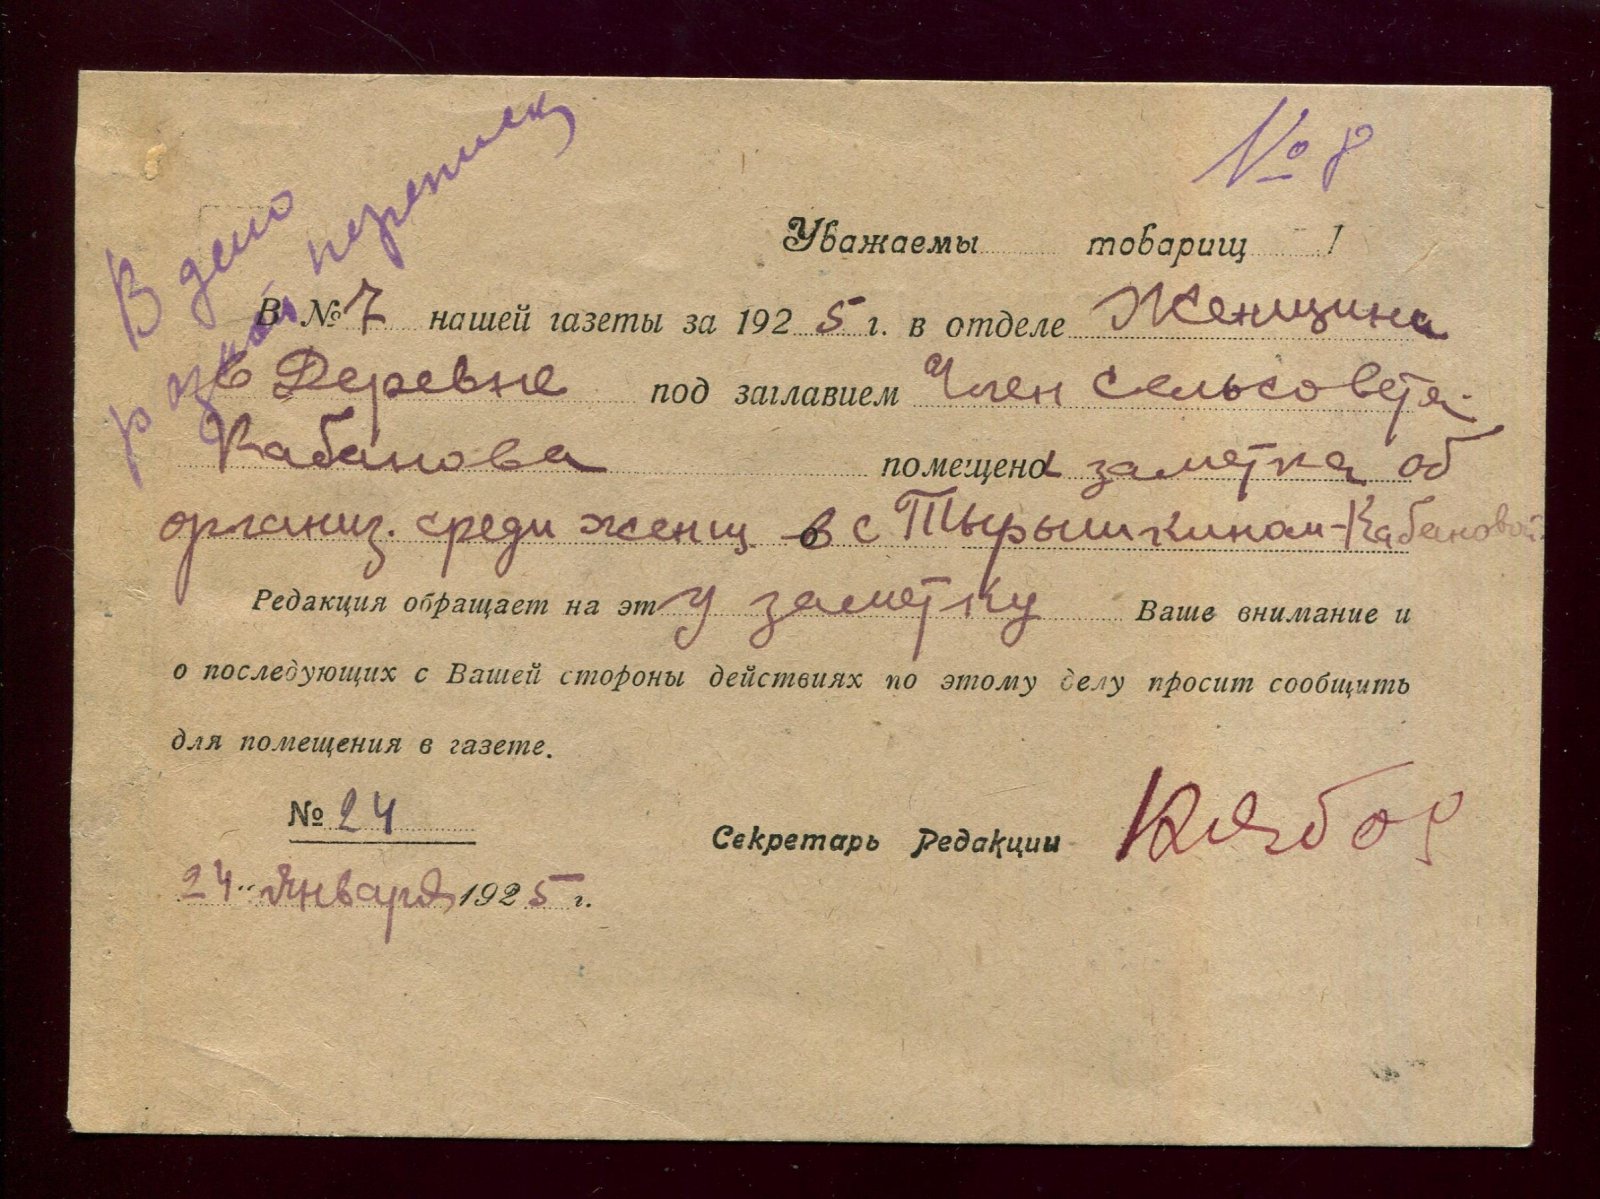 В дело
разной переписки
№ 8
Уважаемы товарищ !
В № 7 нашей газеты за 1925 г. в отделе Женщина
в Деревне под заглавием Член сельсовета
Кабанова помещена заметка об
организ. среди женщ. в с Тырышкинам-Кабановой.
Редакция обращает на эту заметку Ваше внимание и
о последующих с Вашей стороны действиях по этому делу просит сообщить
для помещения в газете.
№ 24
Секретарь Редакции
24 " Января 1925 г.